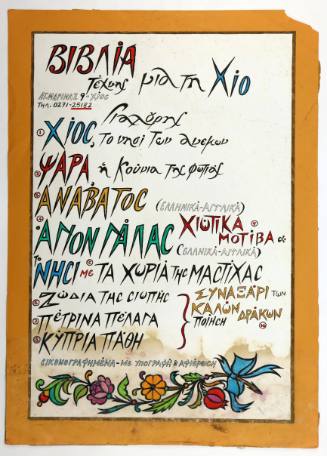 ΒΙΒΛΙΑ
Τέχνης για τη Χίο
ΑΓ. ΜΑΡΙΝΑΣ 9 - ΧΙΟΣ
ΤΗΛ. 0271-25182
Γιαλούρης
① ΧΙΟΣ, Το νησί των ανέμων
② ΨΑΡΑ ή Κούνια της φωτιάς
③ ΑΝΑΒΑΤΟΣ (ΕΛΛΗΝΙΚΑ-ΑΓΓΛΙΚΑ)
④ ΑΓΙΟΝ ΓΑΛΑΣ
ΧΙΩΤΙΚΑ ⑨
ΜΟΤΙΒΑ
(ΕΛΛΗΝΙΚΑ-ΑΓΓΛΙΚΑ)
Το ΝΗΣΙ ΜΕ ΤΑ ΧΩΡΙΑ της ΜΑΣΤΙΧΑΣ
ΖΩΔΙΑ ΤΗΣ ΣΙΩΠΗΣ
ΠΕΤΡΙΝΑ ΠΕΛΑΓΑ
ΚΥΠΡΙΑ ΠΑΘΗ
ΠΟΙΗΣΗ
ΣΥΝΑΞΑΡΙ των
ΚΑΛΩΝ
ΔΡΑΚΩΝ
ΕΙΚΟΝΟΓΡΑΦΗΜΕΝΑ - ΜΕ ΥΠΟΓΡΑΦΗ & ΑΦΙΕΡΩΣΗ